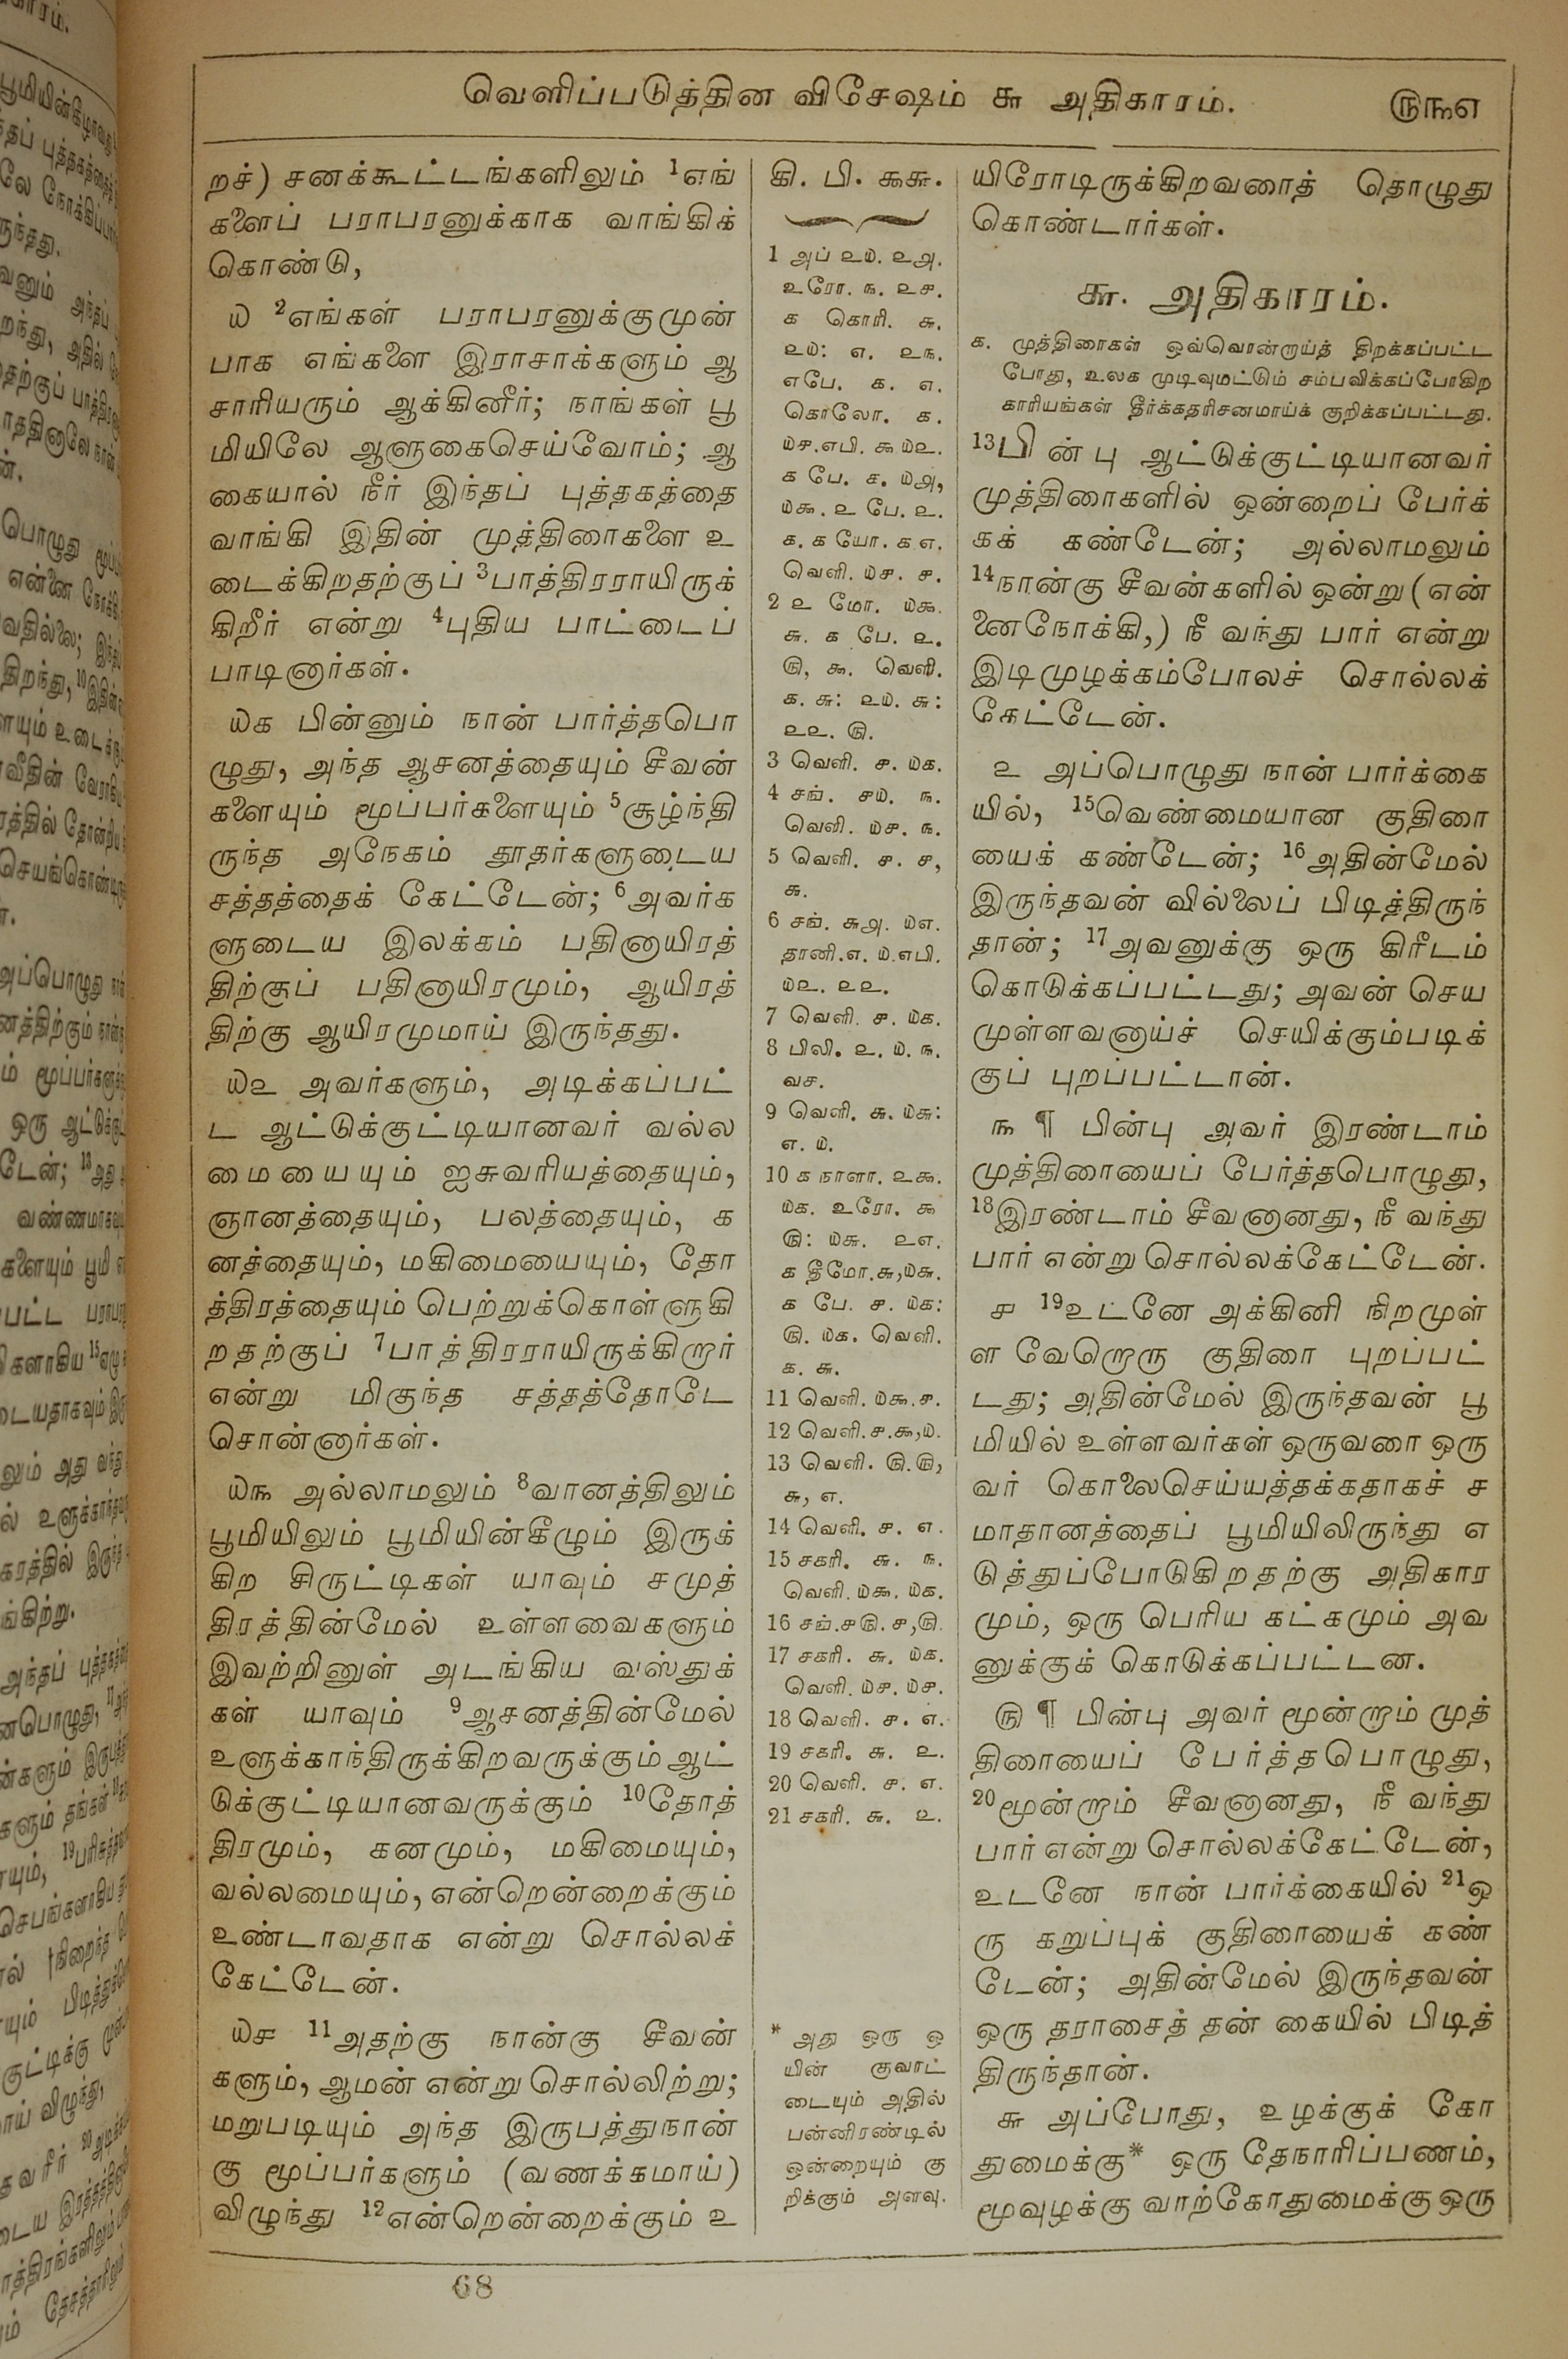 வெளிப்படுத்தின விசேஷம் ௬ அதிகாரம். ௫௩௭
றச்) சனக்கூட்டங்களிலும் 1எங்
களைப் பராபரனுக்காக வாங்கிக்
கொண்டு,
௰ 2எங்கள் பராபரனுக்குமுன்
பாக எங்களை இராசாக்களும் ஆ
சாரியரும் ஆக்கினீர்; நாங்கள் பூ
மியிலே ஆளுகைசெய்வோம்; ஆ
கையால் நீர் இந்தப் புத்தகத்தை
வாங்கி இதின் முத்திரைகளை உ
டைக்கிறதற்குப் 3பாத்திரராயிருக்
கிறீர் என்று 4புதிய பாட்டைப்
பாடினார்கள்.
௰௧ பின்னும் நான் பார்த்தபொ
ழுது, அந்த ஆசனத்தையும் சீவன்
களையும் மூப்பர்களையும் 5சூழ்ந்தி
ருந்த அநேகம் தூதர்களுடைய
சத்தத்தைக் கேட்டேன்; 6அவர்க
ளுடைய இலக்கம் பதினாயிரத்
திற்குப் பதினாயிரமும், ஆயிரத்
திற்கு ஆயிரமுமாய் இருந்தது.
௰௨ அவர்களும், அடிக்கப்பட்
ட ஆட்டுக்குட்டியானவர் வல்ல
மையையும் ஐசுவரியத்தையும்,
ஞானத்தையும், பலத்தையும், க
னத்தையும், மகிமையையும், தோ
த்திரத்தையும் பெற்றுக்கொள்ளுகி
றதற்குப் 7பாத்திரராயிருக்கிறார்
என்று மிகுந்த சத்தத்தோடே
சொன்னார்கள்.
௰௩ அல்லாமலும் 8வானத்திலும்
பூமியிலும் பூமியின்கீழும் இருக்
கிற சிருட்டிகள் யாவும் சமுத்
திரத்தின்மேல் உள்ளவைகளும்
இவற்றினுள் அடங்கிய வஸ்துக்
கள் யாவும் 9ஆசனத்தின்மேல்
உளுக்காந்திருக்கிறவருக்கும் ஆட்
டுக்குட்டியானவருக்கும் 10தோத்
திரமும், கனமும், மகிமையும்,
வல்லமையும், என்றென்றைக்கும்
உண்டாவதாக என்று சொல்லக்
கேட்டேன்.
௰௪ 11அதற்கு நான்கு சீவன்
களும், ஆமன் என்று சொல்லிற்று;
மறுபடியும் அந்த இருபத்துநான்
கு மூப்பர்களும் (வணக்கமாய்)
விழுந்து 12என்றென்றைக்கும் உ
கி. பி. ௯௬.
1 அப் ௨௰. ௨௮.
உரோ. ௩. ௨௪.
௧ கொரி. ௬.
௨௰: ௭. ௨௩.
எபே. ௧. ௭.
கொலோ. ௧.
௰௪.எபி. ௯ ௰௨.
௧ பே. ௧. ௰௮,
௰௯. ௨ பே. ௨.
௧. ௧ யோ. ௧.௭.
வெளி. ௰௪. ௪.
2 ௨ மோ. ௰௯.
௬. ௧ பே. ௨.
௫, ௯. வெளி.
௧. ௬: ௨௰. ௬:
௨௨. ௫.
3 வெளி. ௪. ௰௧.
4 சங். ௪௰. ௩.
வெளி. ௰௪. ௩.
5 வெளி. ௪. ௪,
௬.
6 சங். ௬௮. ௰௭.
தானி.௭. ௰.எபி.
௰௨. ௨௨.
7 வெளி. ௪. ௰௧.
8 பிலி. ௨. ௰. ௩.
வச.
9 வெளி. ௬. ௰௬:
௭. ௰.
10 ௧ நாளா. ௨௯.
௰௧. உரோ. ௯
௫: ௰௬. ௨௭.
௧ தீமோ.௬,௰௬.
௧ பே. ௪. ௰௧:
௫. ௰௧. வெளி.
௧. ௬.
11 வெளி. ௰௯.௪.
12 வெளி.௪.௯,௰.
13 வெளி. ௫.௫,
௬, ௭.
14 வெளி. ௪. ௭.
15 சகரி. ௬. ௩.
வெளி. ௰௯. ௰௧.
16 சங்.௪௫.௪,௫.
17 சகரி. ௬. ௰௧.
வெளி. ௰௪. ௰௪.
18 வெளி. ௪. ௭.
19 சகரி. ௬. ௨.
20 வெளி. ௪. ௭.
21 சகரி. ௬. ௨.
* அது ஒரு ஒ
யின் குவாட்
டையும் அதில்
பன்னிரண்டில்
ஒன்றையும் கு
றிக்கும் அளவு.
யிரோடிருக்கிறவரைத் தொழுது
கொண்டார்கள்.
௬. அதிகாரம்.
௧. முத்திரைகள் ஒவ்வொன்றாய்த் திறக்கப்பட்ட
போது, உலக முடிவுமட்டும் சம்பவிக்கப்போகிற
காரியங்கள் தீர்க்கதரிசனமாய்க் குறிக்கப்பட்டது.
13பின்பு ஆட்டுக்குட்டியானவர்
முத்திரைகளில் ஒன்றைப் பேர்க்
கக் கண்டேன்; அல்லாமலும்
14நான்கு சீவன்களில் ஒன்று (என்
னைநோக்கி,) நீ வந்து பார் என்று
இடிமுழக்கம்போலச் சொல்லக்
கேட்டேன்.
௨ அப்பொழுது நான் பார்க்கை
யில், 15வெண்மையான குதிரை
யைக் கண்டேன்; 16அதின்மேல்
இருந்தவன் வில்லைப் பிடித்திருந்
தான்; 17அவனுக்கு ஒரு கிரீடம்
கொடுக்கப்பட்டது; அவன் செய
முள்ளவனாய்ச் செயிக்கும்படிக்
குப் புறப்பட்டான்.
௩ ¶ பின்பு அவர் இரண்டாம்
முத்திரையைப் பேர்த்தபொழுது,
18இரண்டாம் சீவனானது, நீ வந்து
பார் என்று சொல்லக்கேட்டேன்.
௪ 19உடனே அக்கினி நிறமுள்
ள வேறொரு குதிரை புறப்பட்
டது; அதின்மேல் இருந்தவன் பூ
மியில் உள்ளவர்கள் ஒருவரை ஒரு
வர் கொலைசெய்யத்தக்கதாகச் ச
மாதானத்தைப் பூமியிலிருந்து எ
டுத்துப்போடுகிறதற்கு அதிகார
மும், ஒரு பெரிய கட்கமும் அவ
னுக்குக் கொடுக்கப்பட்டன.
௫ ¶ பின்பு அவர் மூன்றாம் முத்
திரையைப் பேர்த்தபொழுது,
20மூன்றாம் சீவனானது, நீ வந்து
பார் என்று சொல்லக்கேட்டேன்,
உடனே நான் பார்க்கையில் 21ஒ
ரு கறுப்புக் குதிரையைக் கண்
டேன்; அதின்மேல் இருந்தவன்
ஒரு தராசைத் தன் கையில் பிடித்
திருந்தான்.
௬ அப்போது, உழக்குக் கோ
துமைக்கு* ஒரு தேநாரிப்பணம்,
மூவுழக்கு வாற்கோதுமைக்கு ஒரு
68